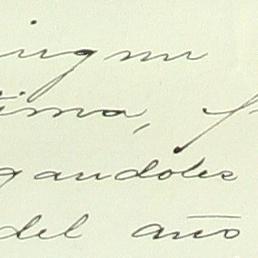 ingun
tima,
gandoles
del año